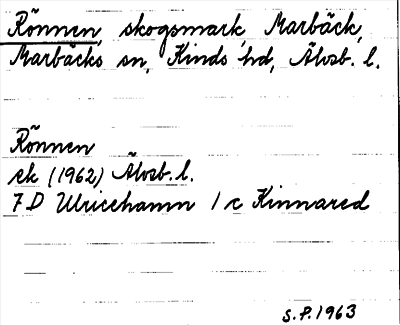 Rönnen, skogsmark, Marbäck,
Marbäcks sn, Kinds hd, Älvsb. l.
Rönnen
ek (1962) Älvsb. l.
7 D Ulricehamn 1 c Kinnared
S.P. 1963